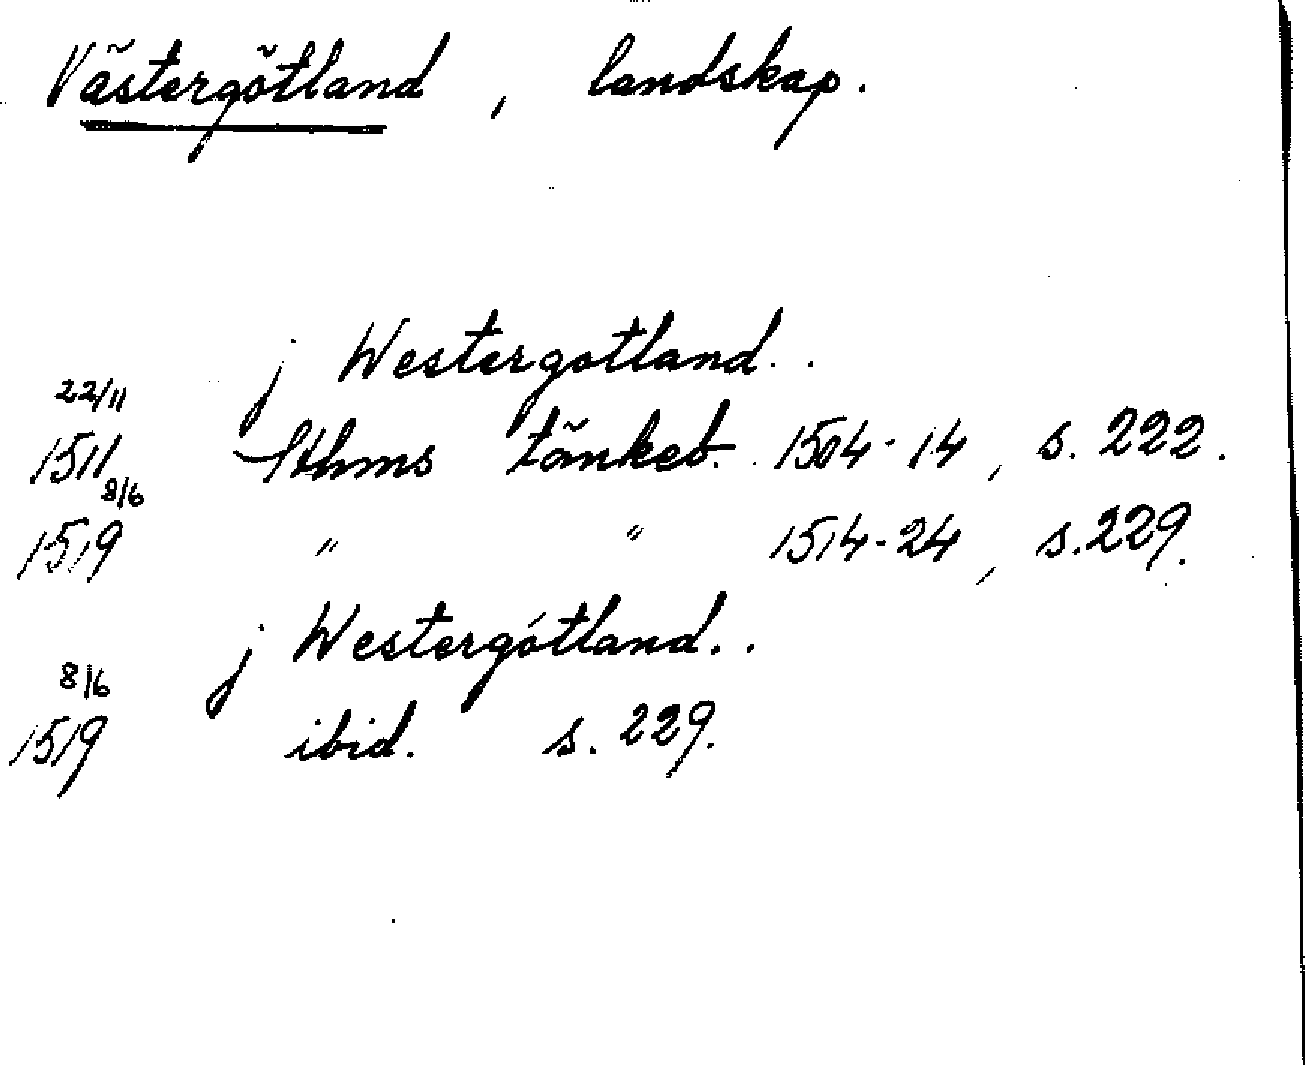 Västergötland, landskap.
j Westergotland..
22/11
1511 Sthms tänkeb. 1504-14, s. 222.
8/6
1519 " " 1514-24, s. 229.
j Westergótland..
8/6
1519 ibid. s. 229.